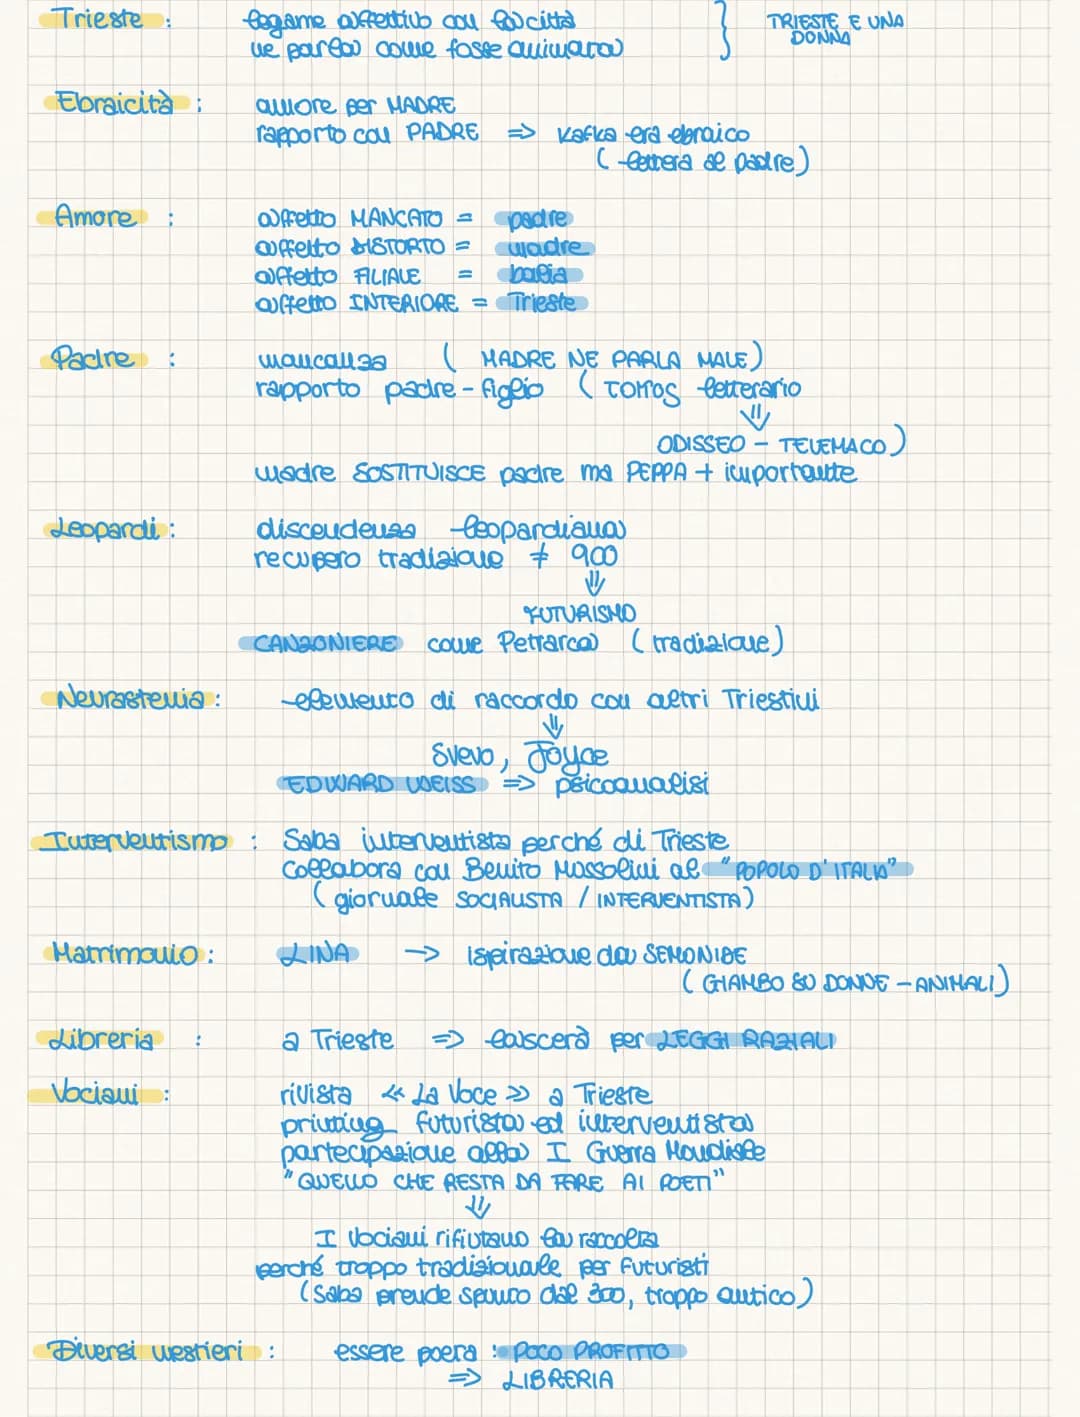 Trieste : legame affettivo con la città } TRIESTE E UNA
ne parla come fosse animata DONNA
Ebraicità : amore per MADRE
rapporto con PADRE => Kafka era ebraico
( lettera al padre )
Amore : affetto MANCATO = padre
affetto DISTORTO = madre
affetto FILIALE = balia
affetto INTERIORE = Trieste
Padre : mancanza ( MADRE NE PARLA MALE )
rapporto padre - figlio ( TOPOS letterario
⇓
ODISSEO - TELEMACO )
madre SOSTITUISCE padre ma PEPPA + importante
Leopardi : discendenza leopardiana
recupero tradizione ≠ 900
⇓
FUTURISMO
CANZONIERE come Petrarca ( tradizione )
Neurastenia : elemento di raccordo con altri Triestini
⇓
Svevo, Joyce
EDWARD WEISS => psicoanalisi
Interventismo : Saba interventista perché di Trieste
Collabora con Benito Mussolini al "POPOLO D'ITALIA"
( giornale SOCIALISTA / INTERVENTISTA )
Matrimonio : LINA -> ispirazione da SEMONIDE
( GIAMBO SU DONNE - ANIMALI )
Libreria : a Trieste => lascerà per LEGGI RAZIALI
Vociani : rivista << La Voce >> a Trieste
printing futurista ed interventista
partecipazione alla I Guerra Mondiale
"QUELLO CHE RESTA DA FARE AI POETI"
⇓
I Vociani rifiutano la raccolta
perché troppo tradizionale per Futuristi
( Saba prende spunto dal 300, troppo antico )
Diversi mestieri : essere poeta : POCO PROFITTO
=> LIBRERIA